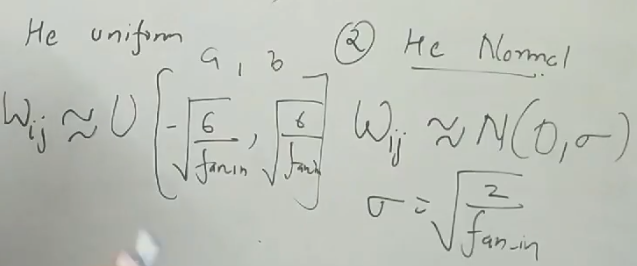 He uniform
a, b
W_ij ≈ U [-√(6/fan_in), √(6/fan_in)]
② He Normal
W_ij ≈ N(0, σ)
σ = √(2/fan_in)